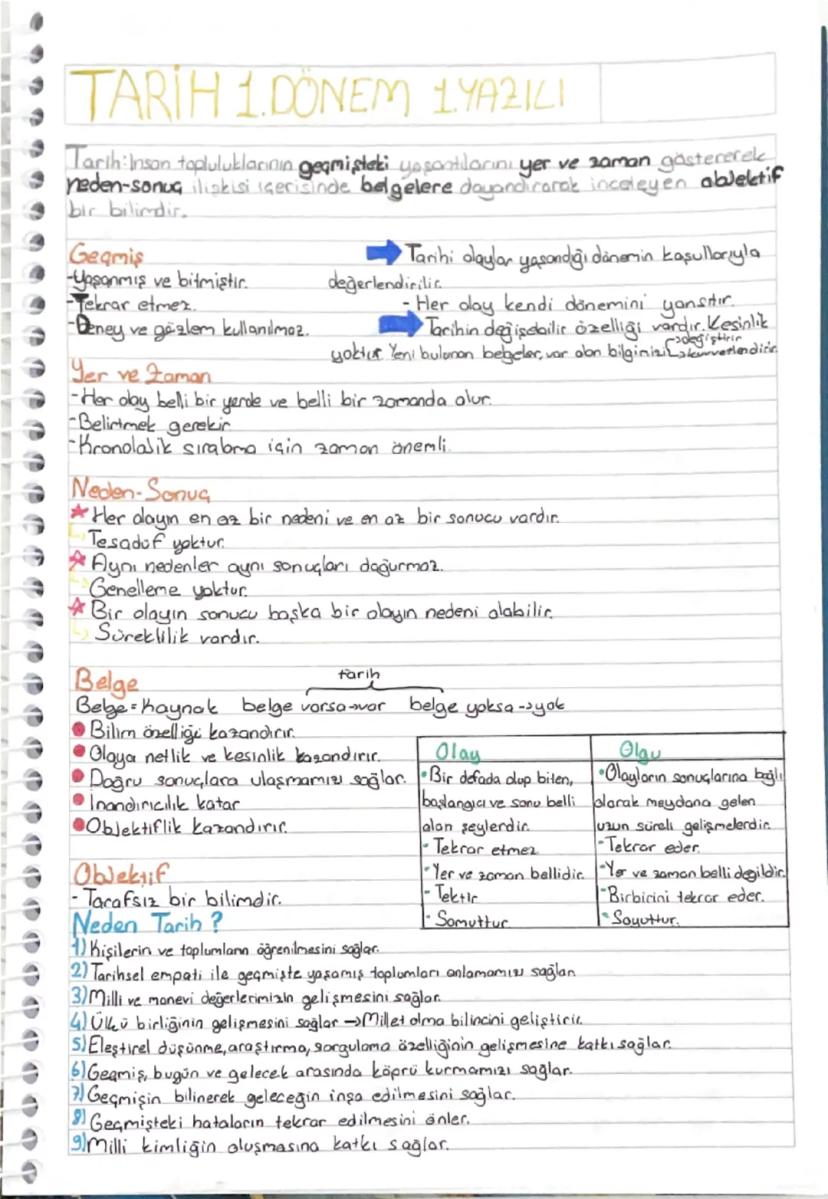 TARİH 1.DÖNEM 1.YAZILI
Tarih: İnsan topluluklarının geçmişteki yaşantılarını yer ve zaman göstererek
neden-sonuç ilişkisi içerisinde belgelere dayandırarak inceleyen objektif
bir bilimdir.
Geçmiş
-Yaşanmış ve bitmiştir.
-Tekrar etmez.
-Deney ve gözlem kullanılmaz.
Tarihi olaylar yaşandığı dönemin koşullarıyla
değerlendirilir.
- Her olay kendi dönemini yansıtır.
Tarihin değişebilir özelliği vardır. Kesinlik
yoktur. Yeni bulunan belgeler, var olan bilginizi →değiştirir
→kuvvetlendirir.
Yer ve Zaman
-Her olay belli bir yerde ve belli bir zamanda olur.
-Belirtmek gerekir
-Kronolojik sıralama için zaman önemli.
Neden-Sonuç
☆ Her olayın en az bir nedeni ve en az bir sonucu vardır.
↳ Tesadüf yoktur.
☆ Aynı nedenler aynı sonuçları doğurmaz.
↳ Genelleme yoktur.
☆ Bir olayın sonucu başka bir olayın nedeni olabilir.
↳ Süreklilik vardır.
Belge
tarih
Belge=Kaynak belge varsa→var belge yoksa→yok
• Bilim özelliği kazandırır.
• Olaya netlik ve kesinlik kazandırır.
• Doğru sonuçlara ulaşmamızı sağlar.
• İnandırıcılık katar
• Objektiflik kazandırır.
Objektif
- Tarafsız bir bilimdir.
Olay
• Bir defada olup biten,
başlangıcı ve sonu belli
olan şeylerdir.
- Tekrar etmez
- Yer ve zaman bellidir.
- Tektir
- Somuttur
Olgu
• Olayların sonuçlarına bağlı
olarak meydana gelen
uzun süreli gelişmelerdir.
- Tekrar eder.
- Yer ve zaman belli değildir.
- Birbirini tekrar eder.
- Soyuttur.
Neden Tarih ?
1) Kişilerin ve toplumların öğrenilmesini sağlar.
2) Tarihsel empati ile geçmişte yaşamış toplumları anlamamızı sağlar.
3) Milli ve manevi değerlerimizin gelişmesini sağlar.
4) Ülkü birliğinin gelişmesini sağlar →Millet olma bilincini geliştirir.
5) Eleştirel düşünme, araştırma, sorgulama özelliğinin gelişmesine katkı sağlar.
6) Geçmiş, bugün ve gelecek arasında köprü kurmamızı sağlar.
7) Geçmişin bilinerek geleceğin inşa edilmesini sağlar.
8) Geçmişteki hataların tekrar edilmesini önler.
9) Milli kimliğin oluşmasına katkı sağlar.